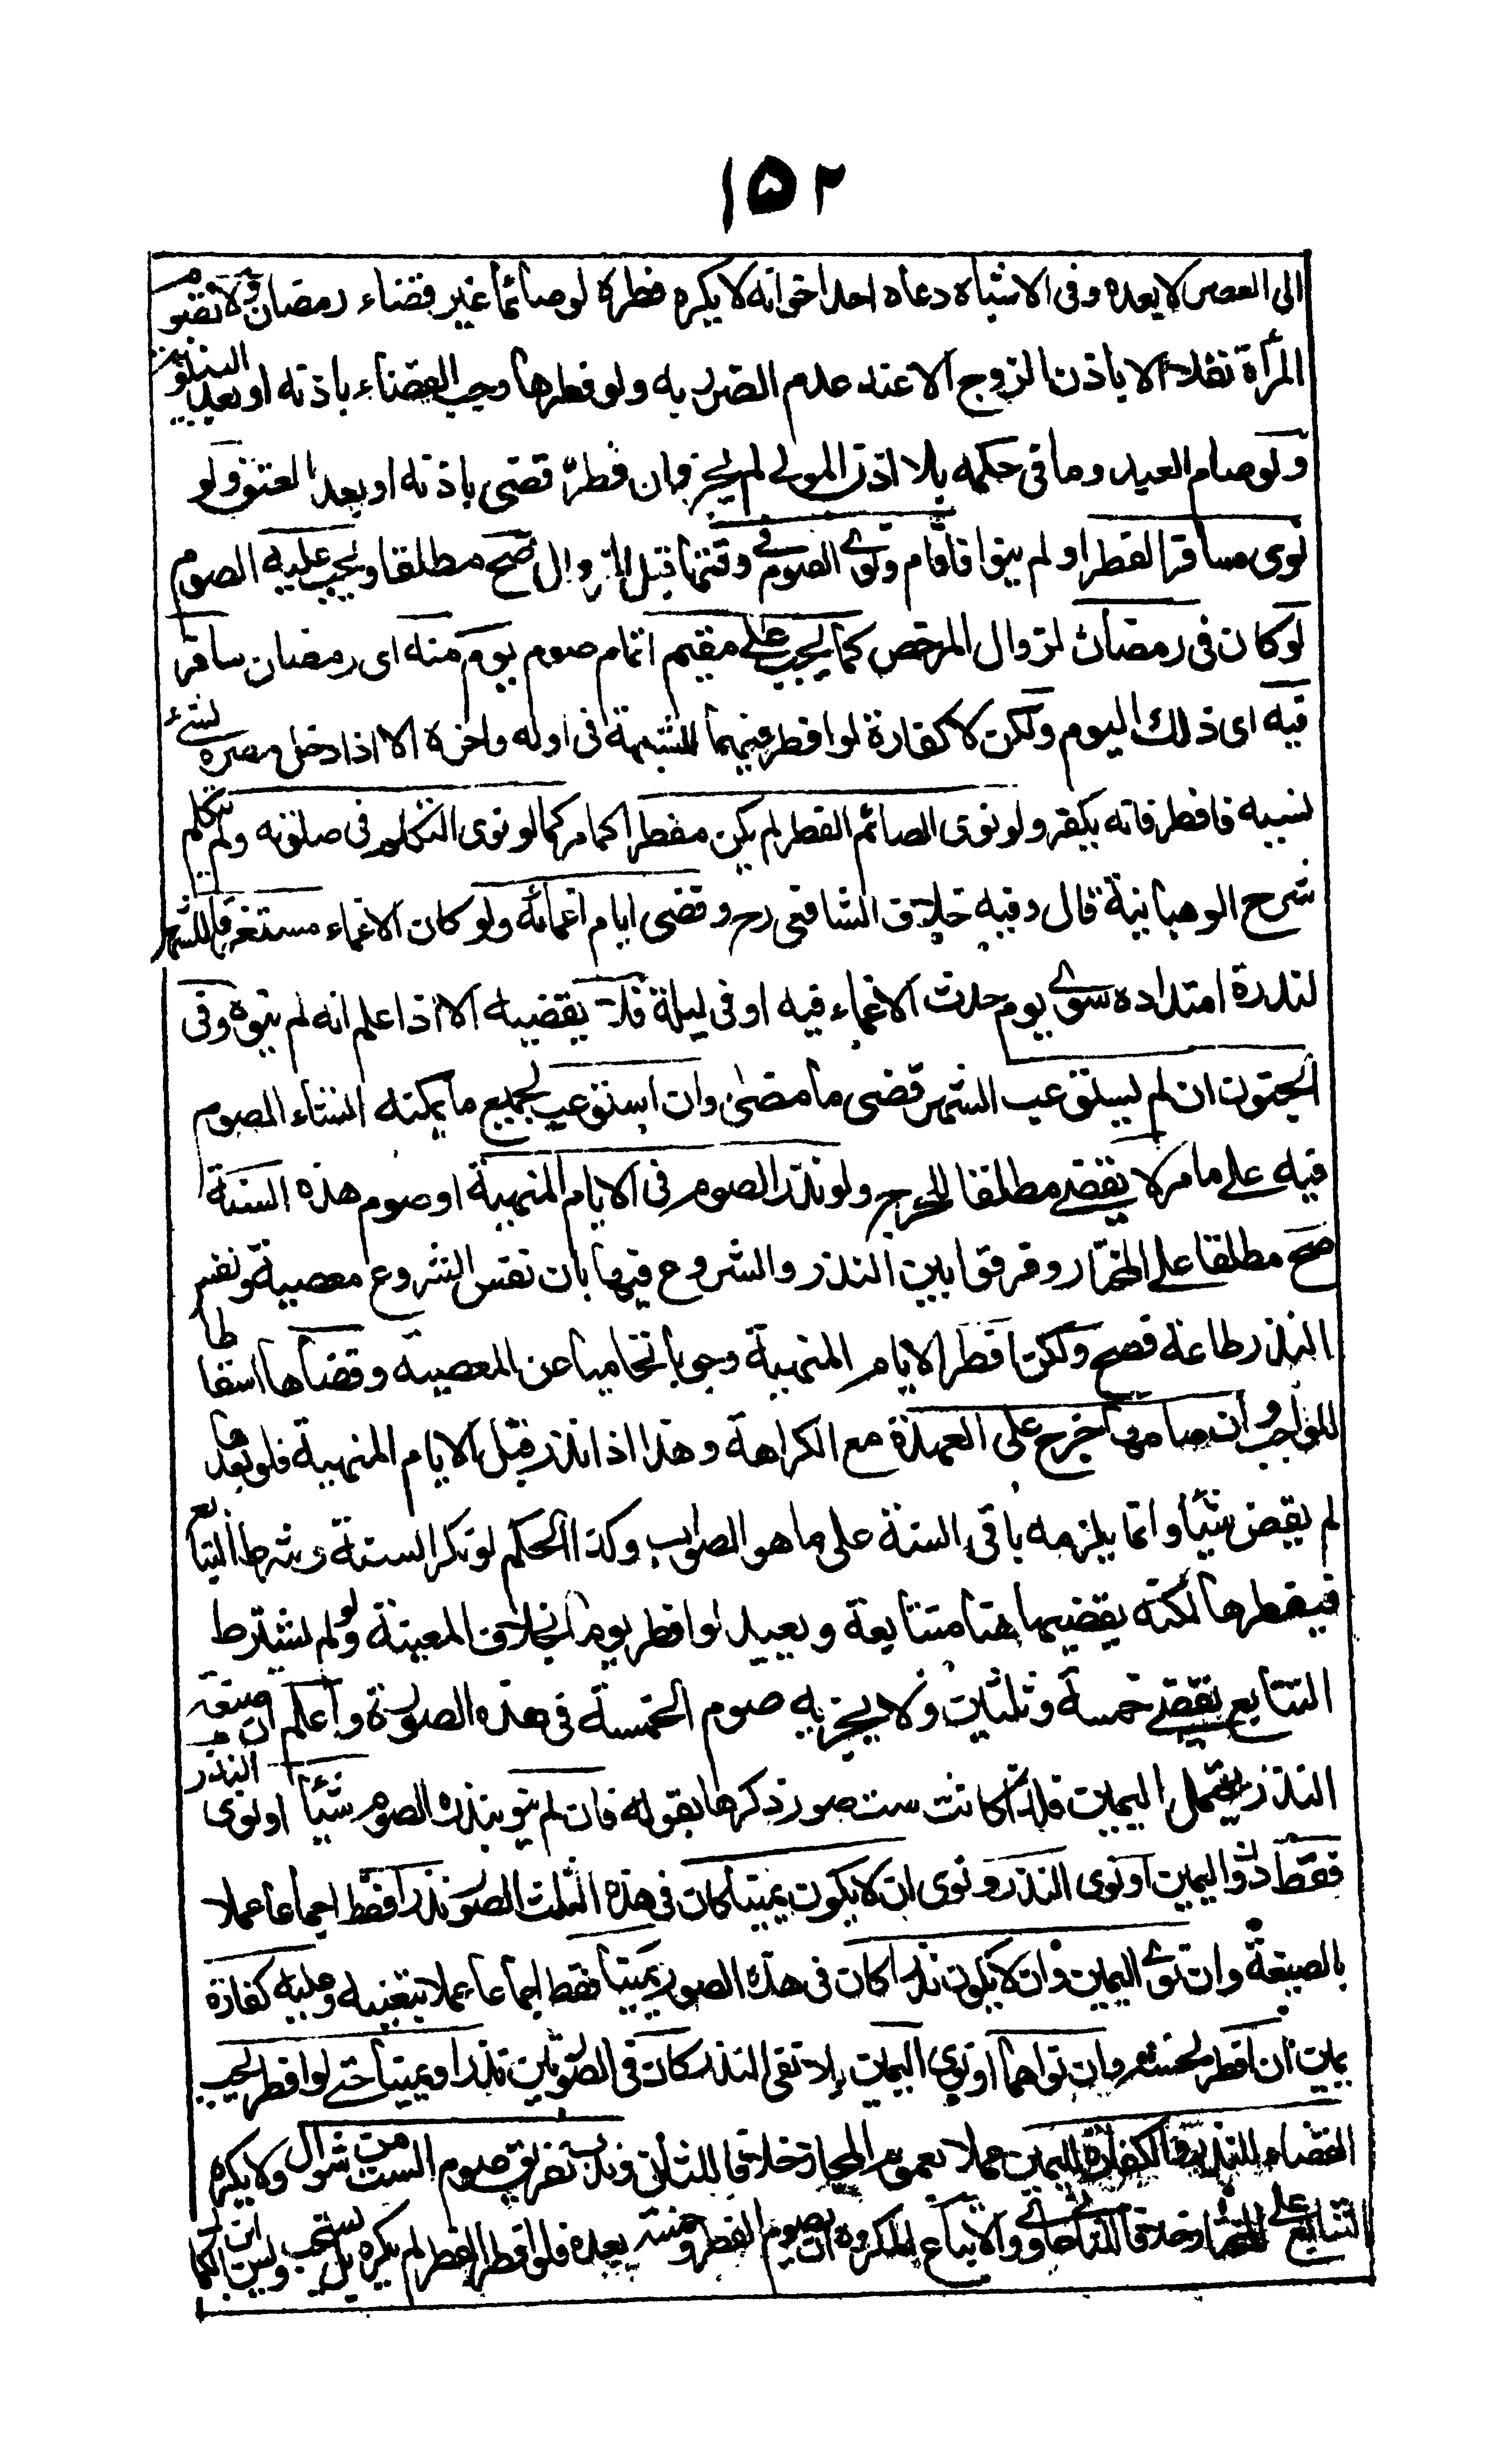 ١٥٢
الى العصر لا بعده وفى الاشباه دعاه احد اخوانه لا يكره فطره لو صائما غير قضاء رمضان ولا تصوم
المرأة نفلا الا باذن الزوج الا عند عدم الضرر به ولو فطرها وجب القضاء باذنه او بعد البينونة
ولو صام العبد وما فى حكمه بلا اذن المولى لم يجز فان فطره قضى باذنه او بعد العتق ولو
نوى مسافر الفطر او لم ينو فاقام ونوى الصوم فى وقتها قبل الزوال صح مطلقا ويجب عليه الصوم
لو كان فى رمضان لزوال المرخص كما يجب على مقيم اتمام صوم يوم منه اى رمضان سافر
فيه اى ذلك اليوم ولكن لا كفارة لو افطر فيهما للشبهة فى اوله واخره الا اذا دخل مصره لشئ
نسيه فافطر فانه يكفر ولو نوى الصائم الفطر لم يكن مفطرا كما مر كما لو نوى التكلم فى صلوته ولم يتكلم
شرح الوهبانية قال وفيه خلاف الشافعى رح وقضى ايام اغمائه ولو كان الاغماء مستغرقا للشهر
لندرة امتداده سوى يوم حدث الاغماء فيه او فى ليلة فلا يقضيه الا اذا علم انه لم ينوه وفى
الجنون ان لم يستوعب الشهر قضى ما مضى وان استوعب لجميع ما يمكنه انشاء الصوم
فيه على ما مر لا يقضى مطلقا للحرج ولو نذر الصوم فى الايام المنهية او صوم هذه السنة
صح مطلقا على المختار وفرقوا بين النذر والشروع فيها بان نفس الشروع معصية ونفس
النذر طاعة فصح ولكن افطر الايام المنهية وجوبا تحاميا عن المعصية وقضاها اسقاطا
للواجب وان صامها خرج على العهدة مع الكراهة وهذا اذا نذر قبل الايام المنهية فلو بعدها
لم يقض شيئا وانما يلزمه باقى السنة على ما هو الصواب وكذا الحكم لو نكر السنة وشرط التتابع
فيفطرها لكنه يقضيها هنا متتابعة ويعيد لو افطر يوما بخلاف المعينة ولو لم يشترط
التتابع يقضى خمسة وثلثين ولا يجزيه صوم الخمسة فى هذه الصورة واعلم ان صيغة
النذر يحتمل اليمين فلذا كانت ست صور ذكرها بقوله فان لم ينو بنذره الصوم شيئا او نوى النذر
فقط دون اليمين او نوى النذر ونوى ان لا يكون يمينا كان فى هذه الثلث الصور نذرا فقط اجماعا عملا
بالصيغة وان نوى اليمين وان لا يكون نذرا كان فى هذه الصور يمينا فقط اجماعا عملا بتعيينه وعليه كفارة
يمين ان افطر لحنثه وان نواهما او نوى اليمين بلا نفى النذر كان فى الصورتين نذرا ويمينا حتى لو افطر يجب
القضاء للنذر والكفارة لليمين عملا بعموم المجاز خلافا للثانى وندب تفريق صوم الست من شوال ولا يكره
التتابع على المختار خلافا للثانى حاوى والاتباع المكروه ان يصوم الفطر وخمسة بعده فلو افطر الفطر لم يكره بل يستحب ويسن ابن الكمال